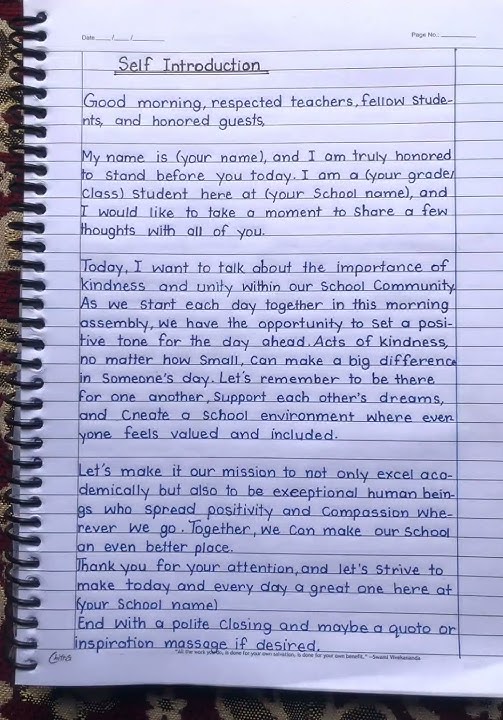 Date ___/___/______
Page No.: ________
Self Introduction
Good morning, respected teachers, fellow stude-
nts, and honored guests,
My name is (your name), and I am truly honored
to stand before you today. I am a (your grade/
class) student here at (your School name), and
I would like to take a moment to share a few
thoughts with all of you.
Today, I want to talk about the importance of
kindness and unity within our School Community.
As we start each day together in this morning
assembly, we have the opportunity to set a posi-
tive tone for the day ahead. Acts of kindness,
no matter how small, can make a big difference
in someone's day. Let's remember to be there
for one another, Support each other's dreams,
and Create a school environment where ever-
yone feels valued and included.
Let's make it our mission to not only excel aca-
demically but also to be exceptional human bein-
gs who spread positivity and compassion whe-
rever we go. Together, we can make our school
an even better place.
Thank you for your attention, and let's strive to
make today and every day a great one here at
(your School name)
End with a polite closing and maybe a quoto or
inspiration massage if desired.
"All the work you do, is done for your own salvation, is done for your own benefit." –Swami Vivekananda